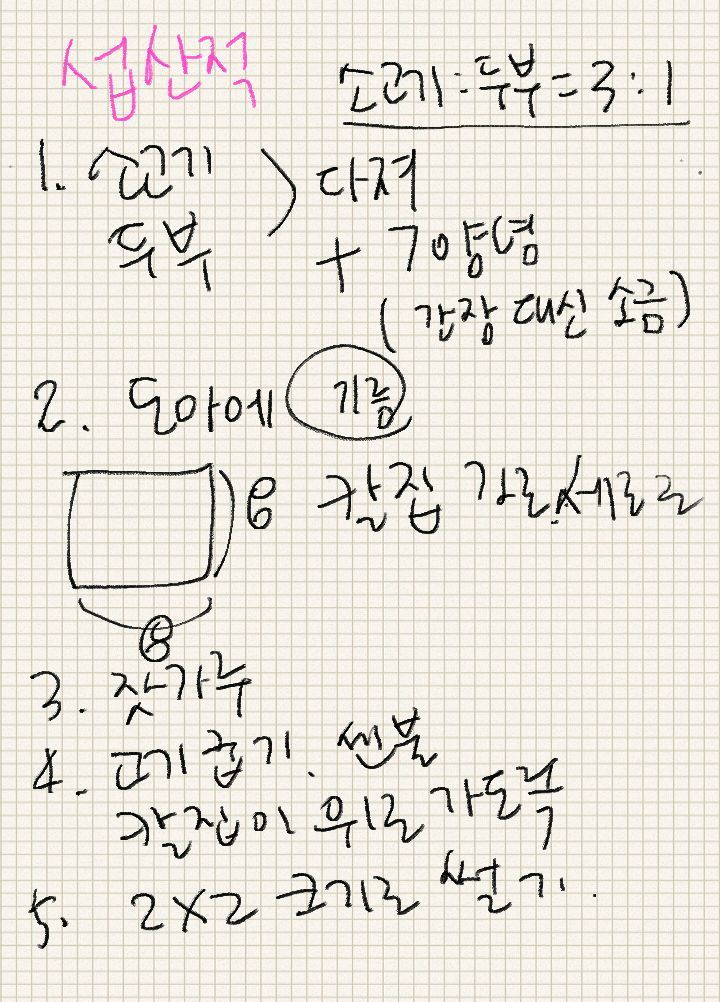 섭산적
소고기:두부=3:1
1. 소고기 > 다져
두부 + 7양념
(간장 대신 소금)
2. 도마에 기름
6 칼집 가로세로로
8
3. 잣가루
4. 고기 굽기. 센불
칼집이 위로 가도록
5. 2X2 크기로 썰기.